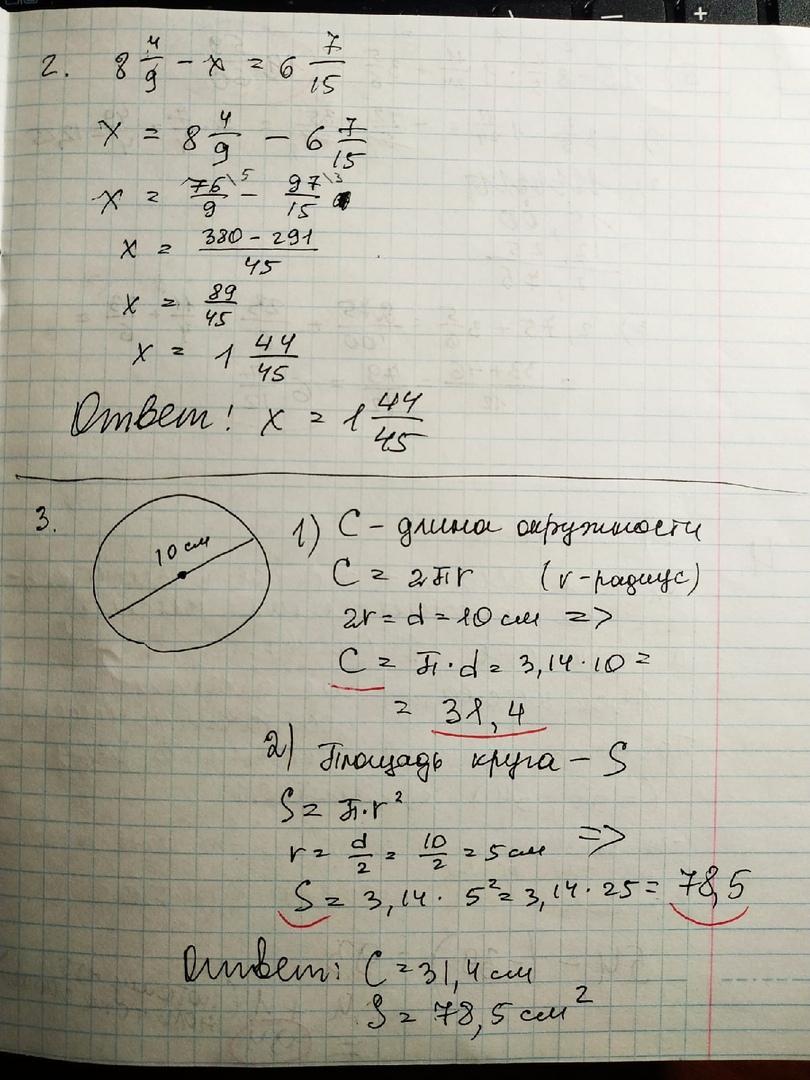 2. 8 4/9 - x = 6 7/15
x = 8 4/9 - 6 7/15
x = 76\5/9 - 97\3/15
x = 380 - 291/45
x = 89/45
x = 1 44/45
Ответ: x = 1 44/45
3.
10 см
1) C - длина окружности
C = 2πr (r-радиус)
2r = d = 10 см =>
C = π·d = 3,14·10 =
= 31,4
2) Площадь круга - S
S = π·r²
r = d/2 = 10/2 = 5 см =>
S = 3,14 · 5² = 3,14·25 = 78,5
Ответ: C = 31,4 см
S = 78,5 см²